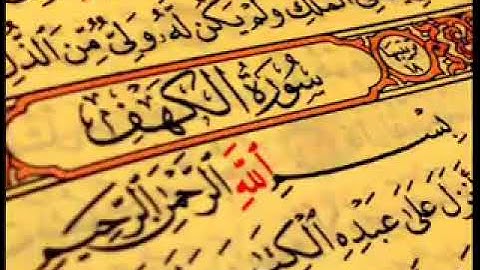 فِي ٱلْمُلْكِ وَلَمْ يَكُن لَّهُۥ وَلِيٌّ مِّنَ ٱلذُّلِّ
سُورَةُ الكَهْفِ
بِسْمِ ٱللَّهِ ٱلرَّحْمَٰنِ ٱلرَّحِيمِ
عَلَىٰ عَبْدِهِ ٱلْكِتَٰبَ